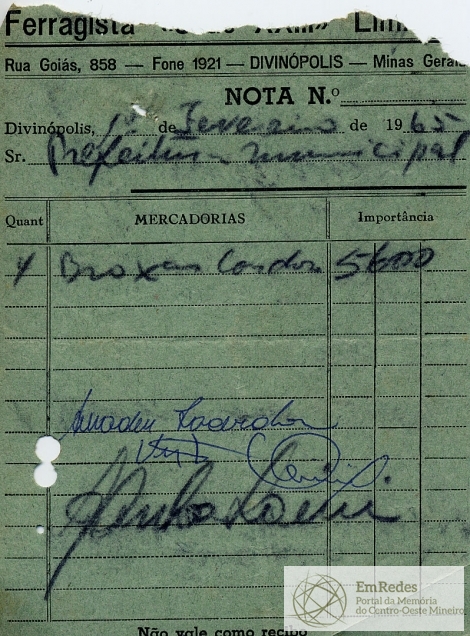 Ferragista
Rua Goiás, 858 — Fone 1921 — DIVINÓPOLIS — Minas Gerais
NOTA N.º
Divinópolis, 1º de Fevereiro de 1965
Sr. Prefeitura municipal
Quant MERCADORIAS Importância
4 Broxas Condor 5600
Não vale como recibo
EmRedes
Portal da Memória
do Centro-Oeste Mineiro